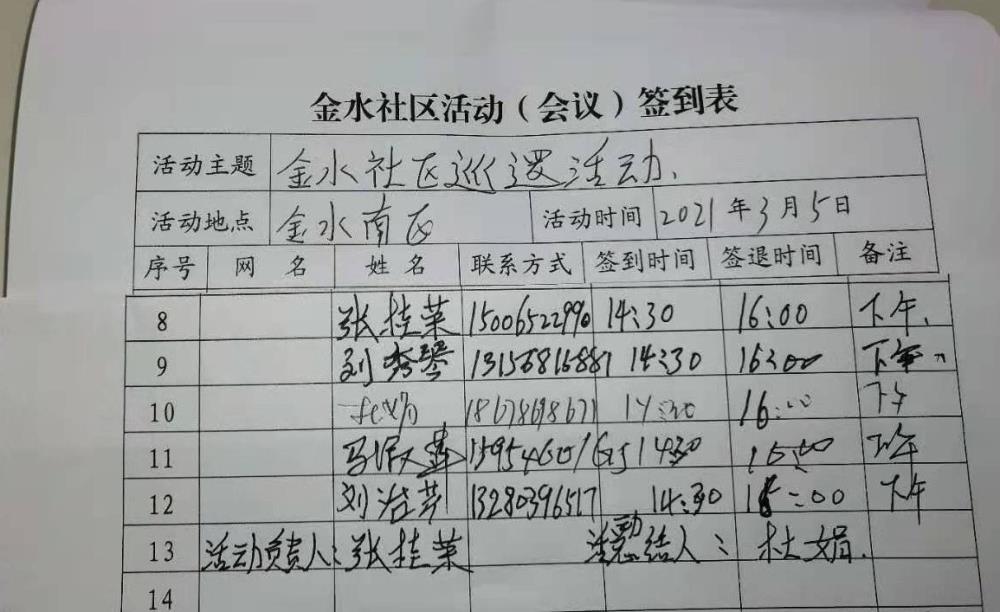 金水社区活动（会议）签到表
活动主题 金水社区巡逻活动
活动地点 金水南区 活动时间 2021年3月5日
序号 网 名 姓 名 联系方式 签到时间 签退时间 备注
8 张桂莱 15006522990 14:30 16:00 下午
9 刘秀琴 13156816887 14:30 16:00 下午
10 18678698671 16:00 下午
11 马 1430 下午
12 刘治芹 13280396517 14:30 :00 下午
13 活动负责人：张桂莱 活动总结人：杜娟
14